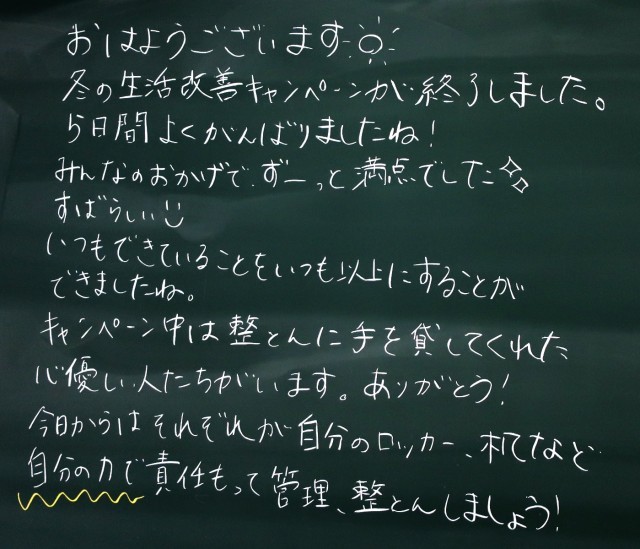 おはようございます
冬の生活改善キャンペーンが終了しました。
5日間よくがんばりましたね!
みんなのおかげで、ずーっと満点でした
すばらしい
いつもできていることをいつも以上にすることが
できましたね。
キャンペーン中は整とんに手を貸してくれた
心優しい人たちがいます。ありがとう!
今日からはそれぞれが自分のロッカー、机など
自分の力で責任もって管理、整とんしましょう!